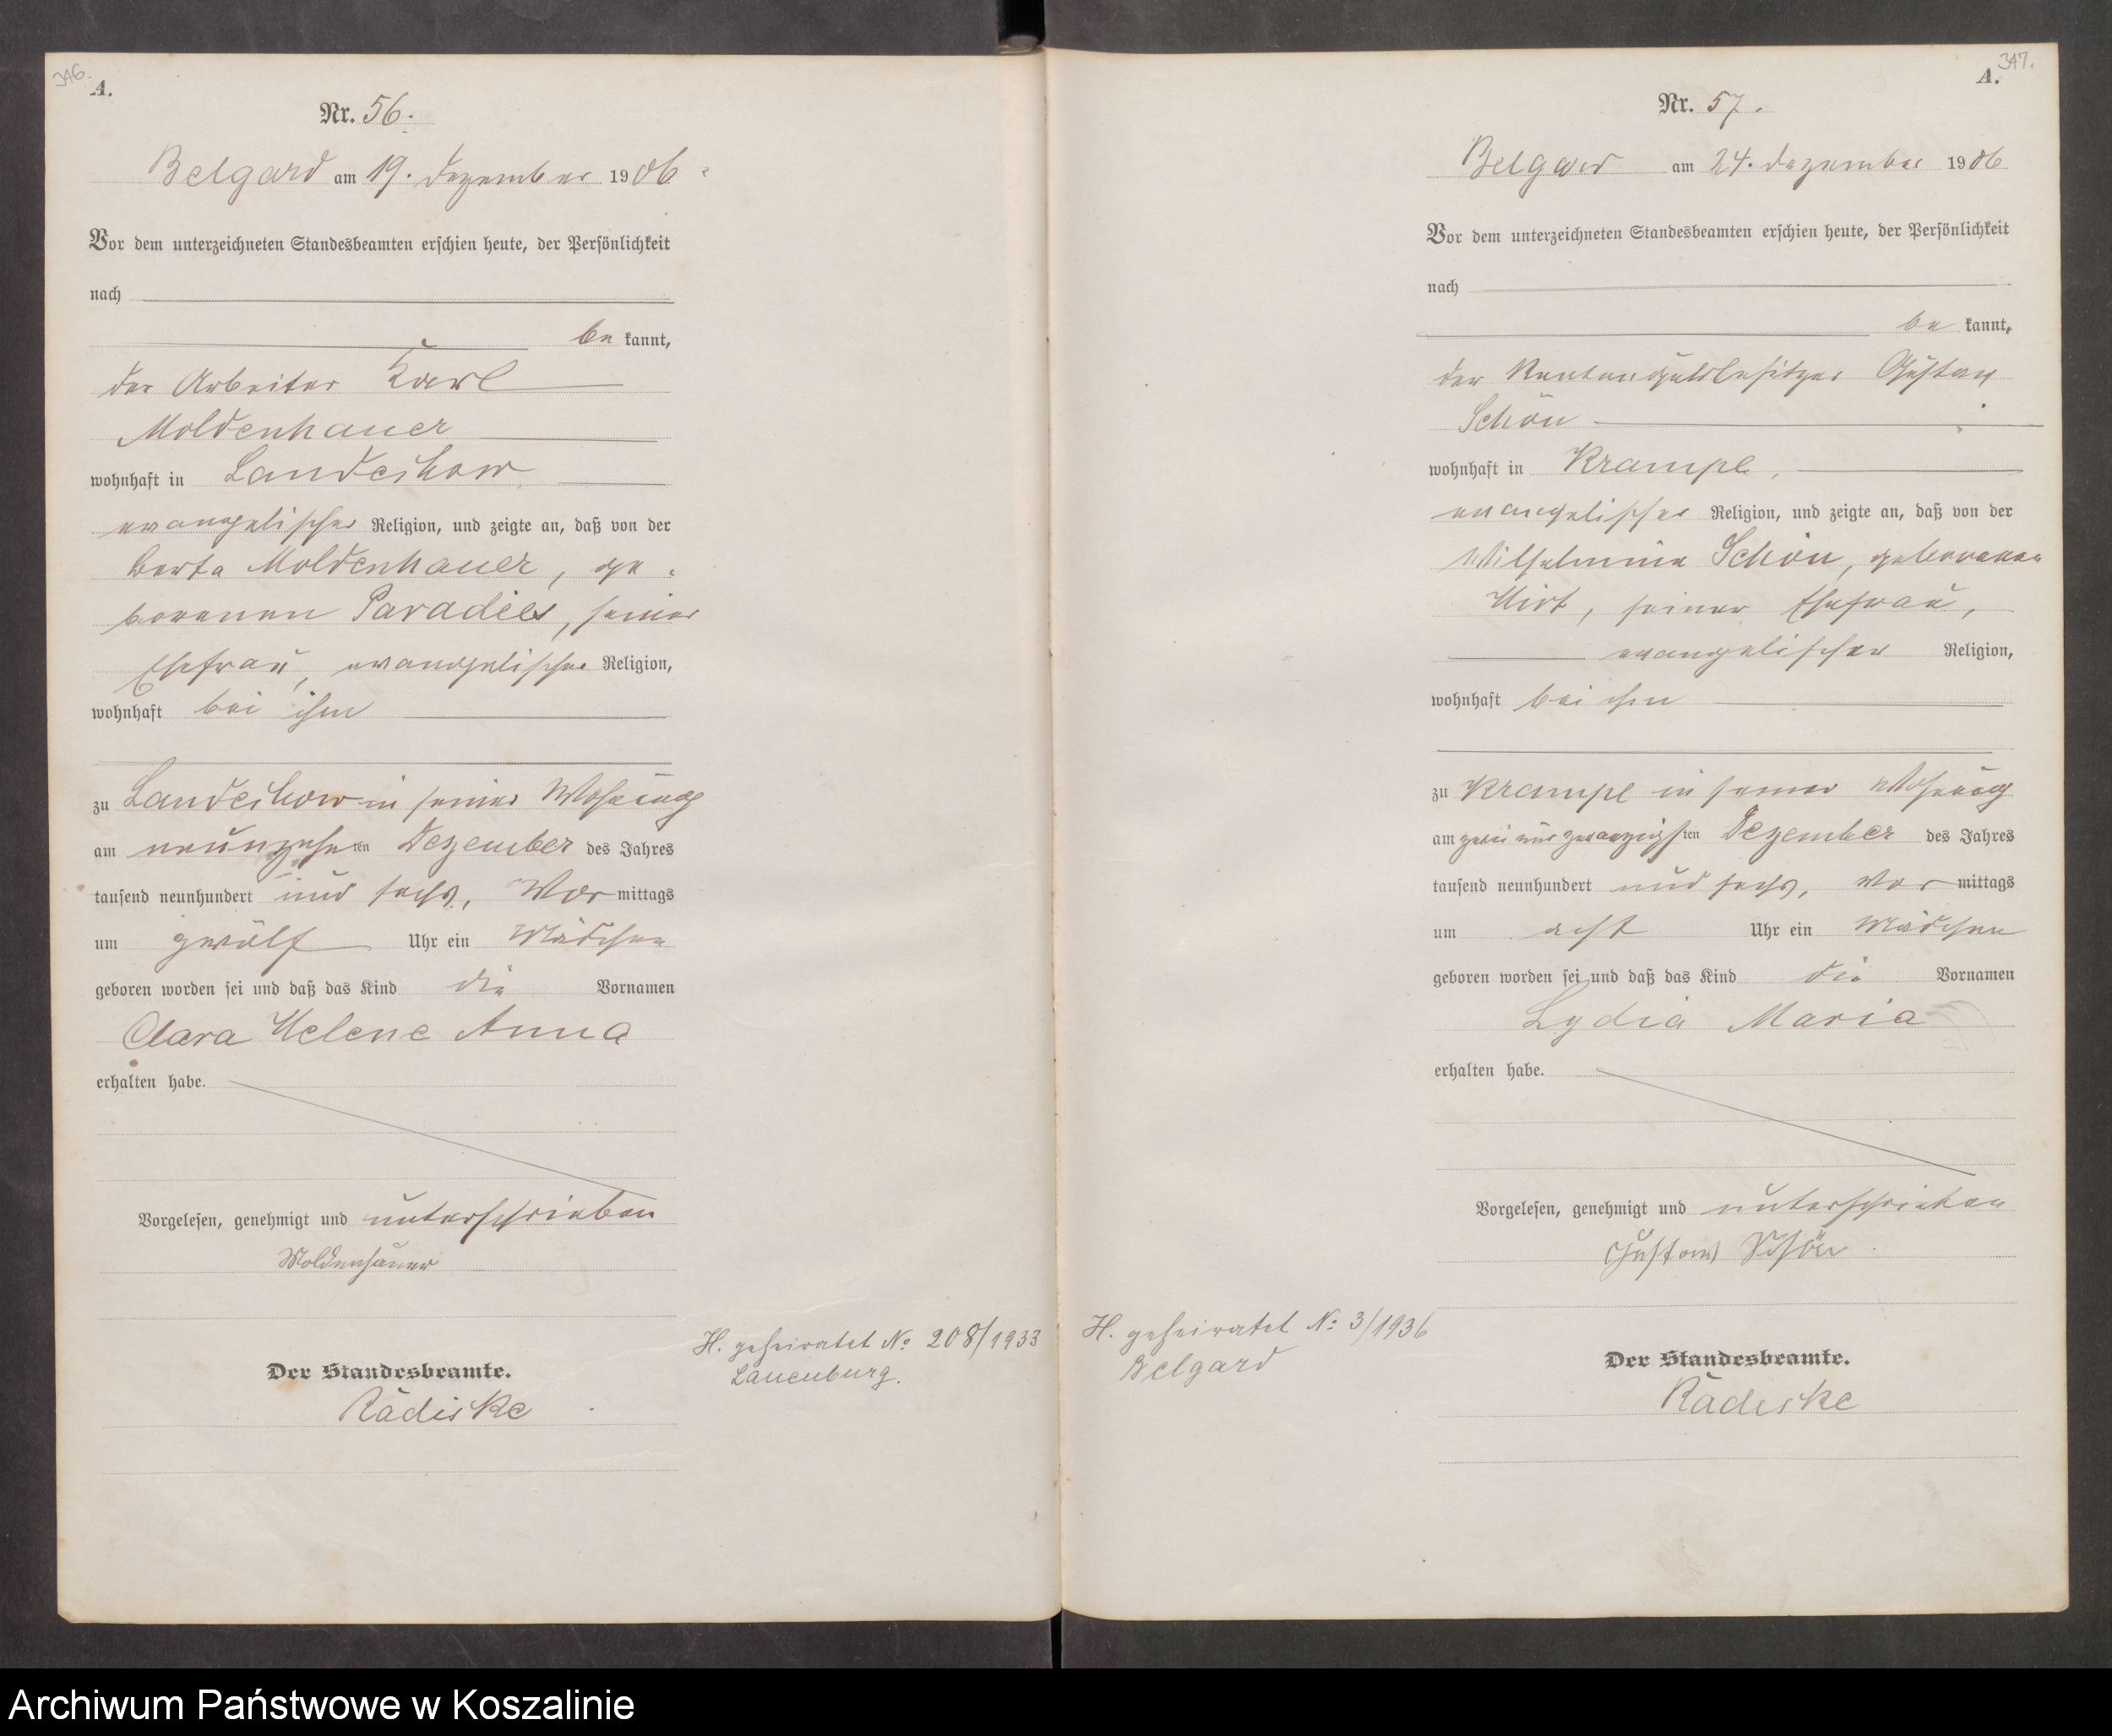 346.
A.
Nr. 56.
Belgard am 19. Dezember 1906
Vor dem unterzeichneten Standesbeamten erschien heute, der Persönlichkeit
nach
be kannt,
der Arbeiter Karl
Moldenhauer
wohnhaft in Landechow
evangelischer Religion, und zeigte an, daß von der
Berta Moldenhauer, ge-
borenen Paradies, seiner
Ehefrau, evangelischer Religion,
wohnhaft bei ihm
zu Landechow in seiner Wohnung
am neunzehnten Dezember des Jahres
tausend neunhundert und sechs, Vor mittags
um zwölf Uhr ein Mädchen
geboren worden sei und daß das Kind die Vornamen
Clara Helene Anna
erhalten habe.
Vorgelesen, genehmigt und unterschrieben
Moldenhauer
H. geheiratet No 208/1933
Lauenburg.
Der Standesbeamte.
Radiske
347.
A.
Nr. 57.
Belgard am 24. Dezember 1906
Vor dem unterzeichneten Standesbeamten erschien heute, der Persönlichkeit
nach
be kannt,
der Rentengutsbesitzer Gustav
Schön
wohnhaft in Krampe,
evangelischer Religion, und zeigte an, daß von der
Wilhelmine Schön, geborenen
Hirt, seiner Ehefrau,
evangelischer Religion,
wohnhaft bei ihm
zu Krampe in seiner Wohnung
am zwei und zwanzigsten Dezember des Jahres
tausend neunhundert und sechs, Vor mittags
um acht Uhr ein Mädchen
geboren worden sei und daß das Kind die Vornamen
Lydia Maria
erhalten habe.
Vorgelesen, genehmigt und unterschrieben
Gustav Schön
H. geheiratet No 3/1936
Belgard
Der Standesbeamte.
Radiske
Archiwum Państwowe w Koszalinie